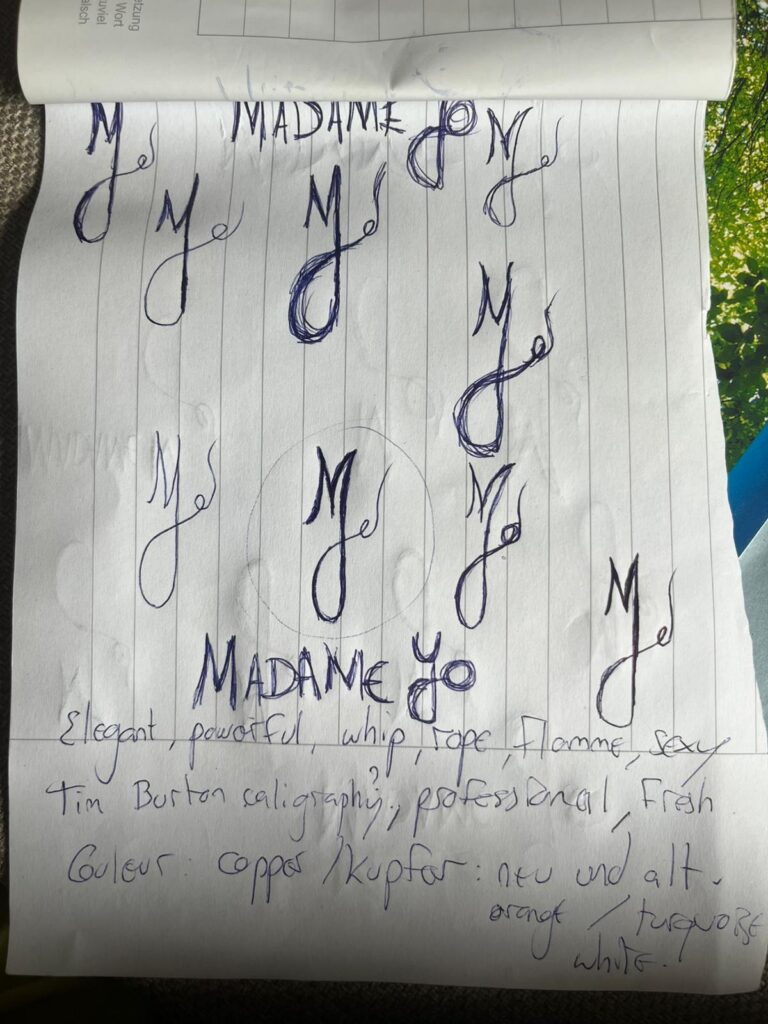 MADAME yo
MADAME yo
Elegant, powerful, whip, rope, Flamme, sexy
Tim Burton caligraphy, professional, Fresh
Couleur: copper / kupfer: neu und alt.
orange / turquoise
white.